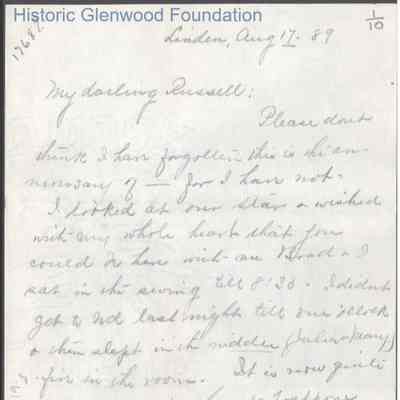 Historic Glenwood Foundation
1/10
1768
Linden, Aug 17 - 89
My darling Russell:
Please don't
think I have forgotten this is the an-
niversary of — for I have not.
I looked at our star & wished
with my whole heart that you
could be here with me &
I
sat in the swing till 8'30. I didn't
get to bed last night till one o'clock
& then slept in the middle (Julia & Nancy)
five in the room. It is now quite
suppose